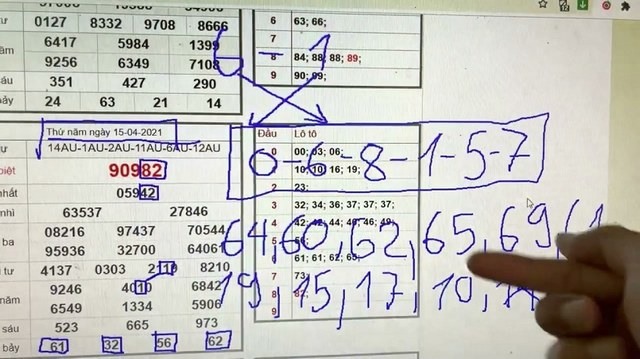 0127 8332 9708 8666
6417 5984 1399
9256 6349 7108
351 427 290
24 63 21 14
6 63; 66;
7
8 84; 88; 88; 89;
9 90; 99;
6 1
Thứ năm ngày 15-04-2021
14AU-1AU-2AU-11AU-6AU-12AU
biệt 90982
nhất 05942
nhì 63537 27846
ba 08216 97437 70544
95936 32700 64061
tư 4137 0303 2119 8210
năm 9246 4010 6842
6549 1334 5906
sáu 523 665 973
bảy 61 32 56 62
Đầu Lô tô
0 00; 03; 06;
10; 10; 16; 19;
2 23;
3 32; 34; 36; 37; 37; 37;
4 42; 42; 44; 46; 46; 49;
61; 61; 62; 65;
7 73;
8
9
0-6-8-1-5-7
64,60,62,65,69,61
19,15,17,10,